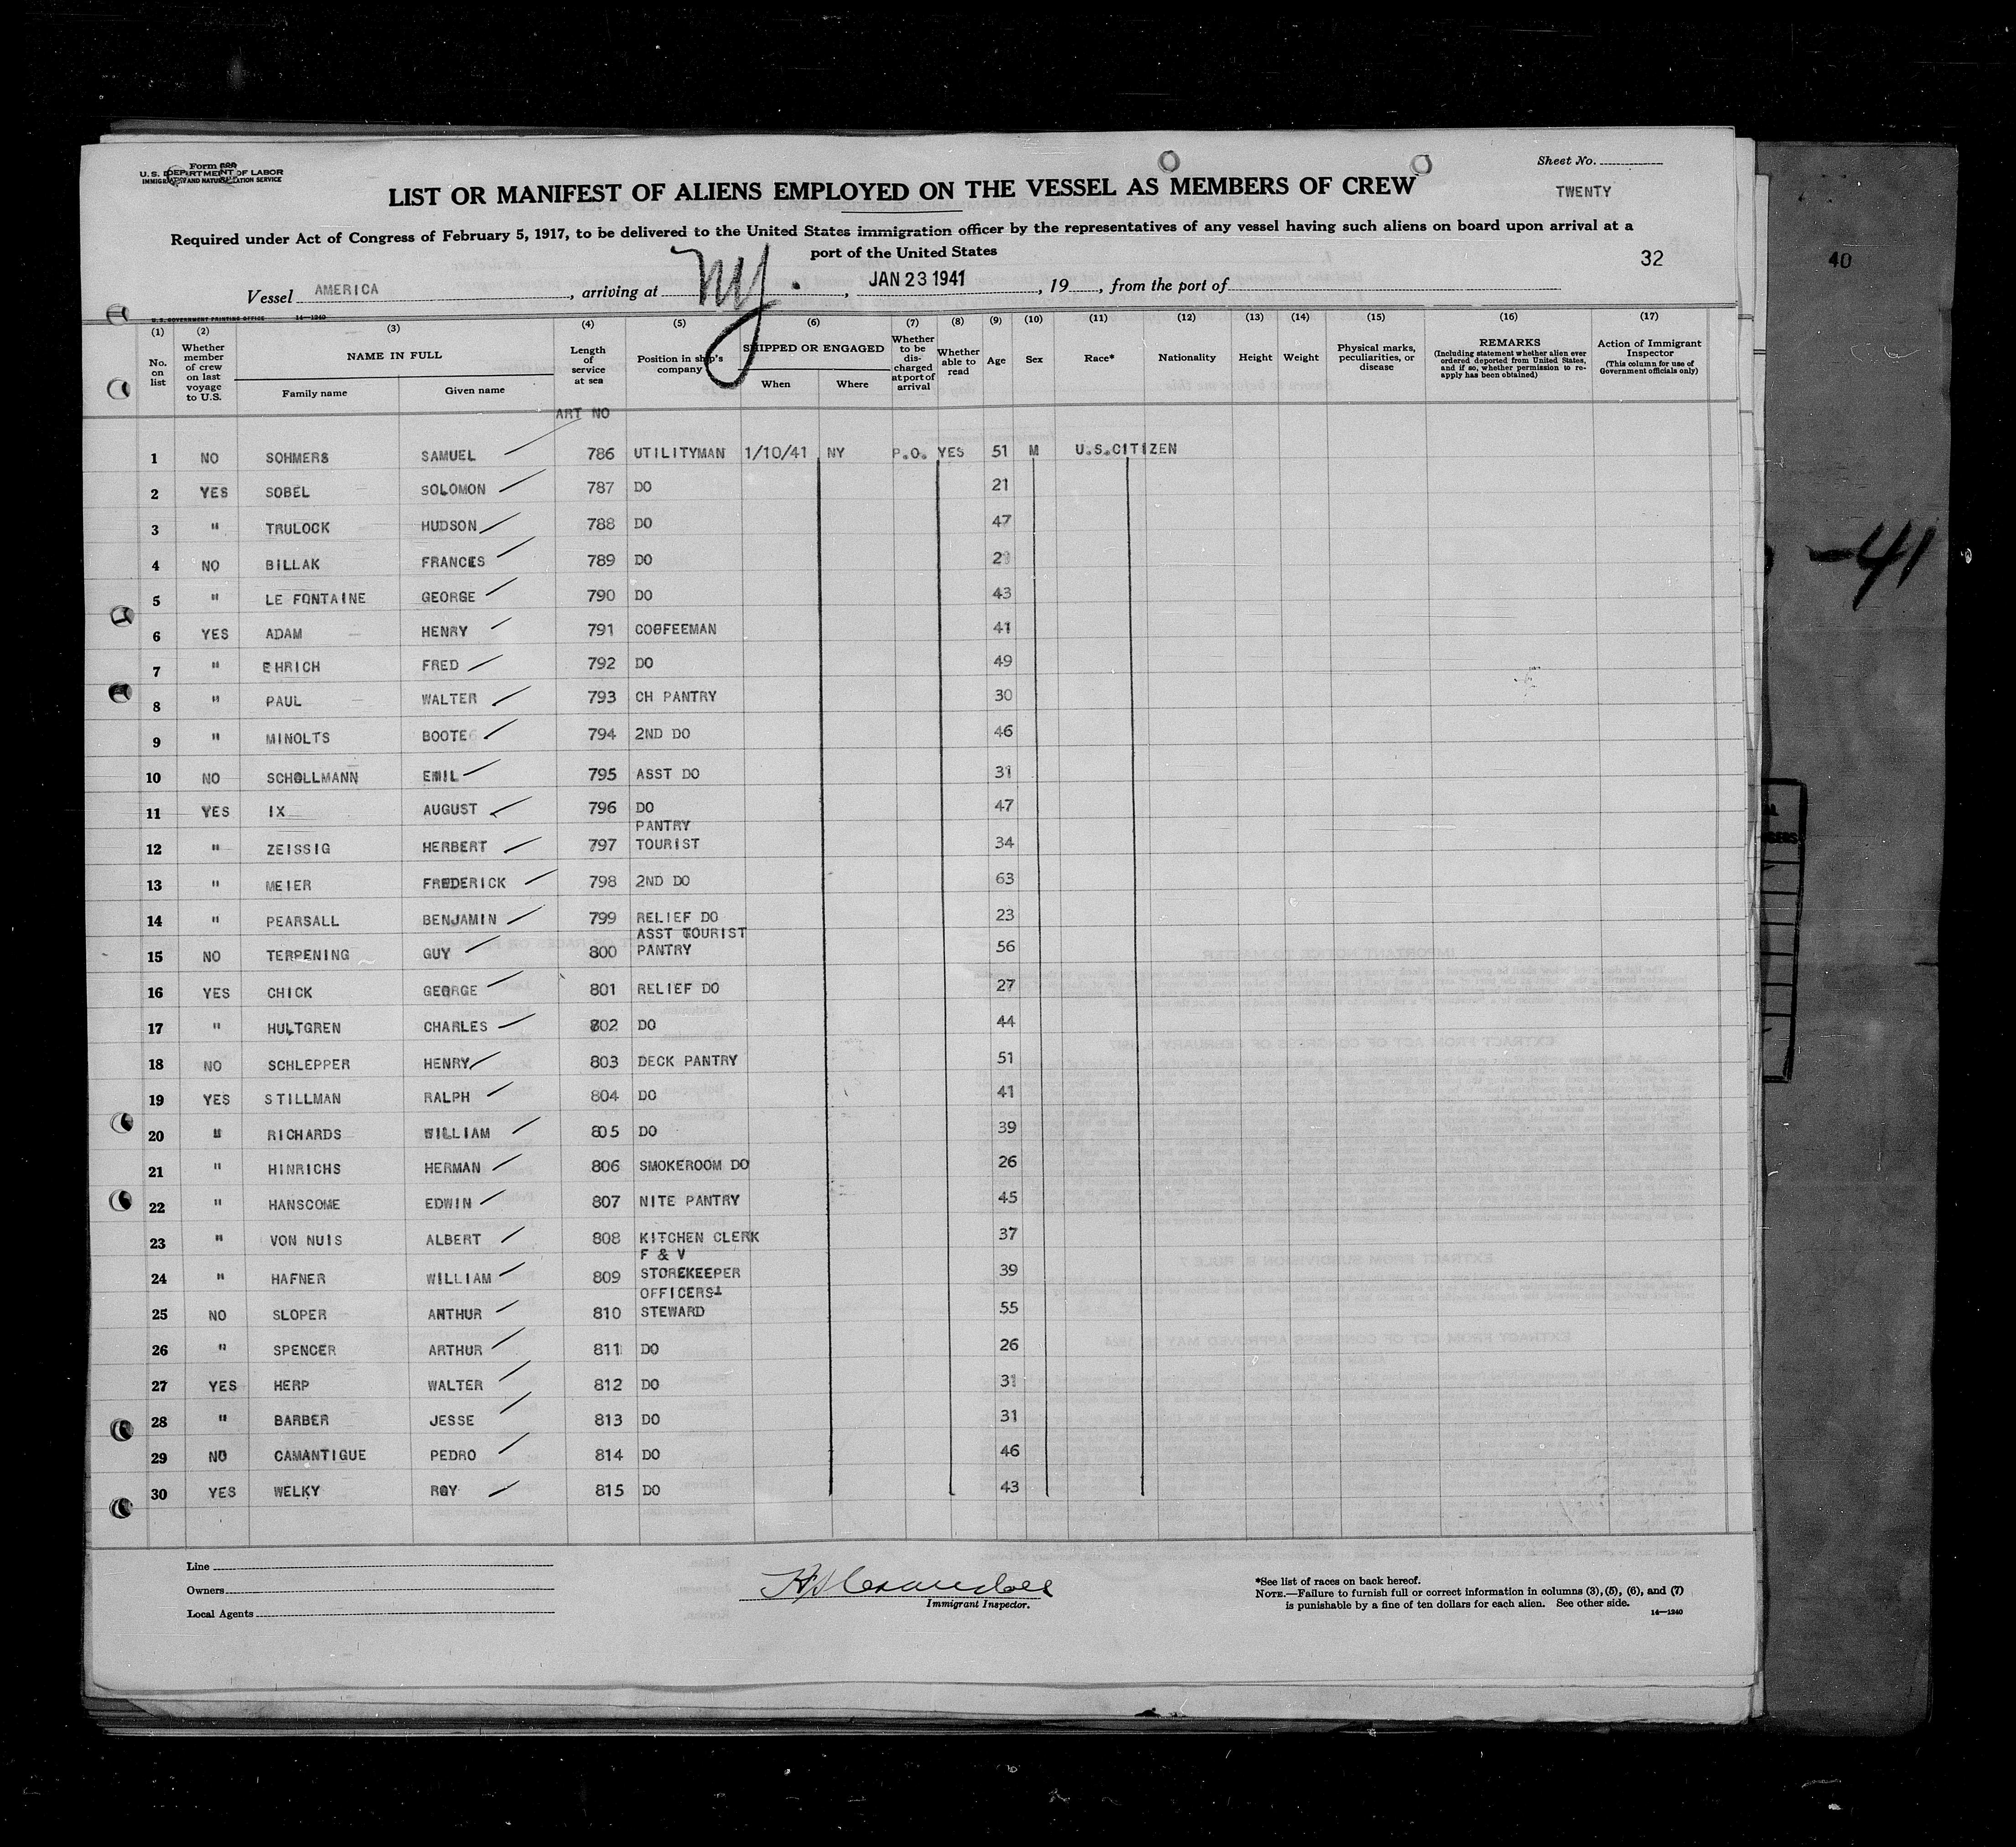 Form 689
U. S. DEPARTMENT OF LABOR
IMMIGRATION AND NATURALIZATION SERVICE
Sheet No.
TWENTY
LIST OR MANIFEST OF ALIENS EMPLOYED ON THE VESSEL AS MEMBERS OF CREW
Required under Act of Congress of February 5, 1917, to be delivered to the United States immigration officer by the representatives of any vessel having such aliens on board upon arrival at a
port of the United States
32
40
Vessel AMERICA, arriving at NY., JAN 23 1941, 19, from the port of
U. S. GOVERNMENT PRINTING OFFICE 14—1240
(1) (2) (3) (4) (5) (6) (7) (8) (9) (10) (11) (12) (13) (14) (15) (16) (17)
No. on list
Whether member of crew on last voyage to U.S.
NAME IN FULL
Family name
Given name
Length of service at sea
Position in ship's company
SHIPPED OR ENGAGED
When
Where
Whether to be discharged at port of arrival
Whether able to read
Age
Sex
Race*
Nationality
Height
Weight
Physical marks, peculiarities, or disease
REMARKS
(Including statement whether alien ever ordered deported from United States, and if so, whether permission to re-apply has been obtained)
Action of Immigrant Inspector
(This column for use of Government officials only)
ART NO
1 NO SOHMERS SAMUEL 786 UTILITYMAN 1/10/41 NY P.O. YES 51 M U.S.CITIZEN
2 YES SOBEL SOLOMON 787 DO 21
3 " TRULOCK HUDSON 788 DO 47
4 NO BILLAK FRANCES 789 DO 2
5 " LE FONTAINE GEORGE 790 DO 43
6 YES ADAM HENRY 791 COFFEEMAN 41
7 " EHRICH FRED 792 DO 49
8 " PAUL WALTER 793 CH PANTRY 30
9 " MINOLTS BOOTE 794 2ND DO 46
10 NO SCHOLLMANN EMIL 795 ASST DO 31
11 YES IX AUGUST 796 DO 47
PANTRY
12 " ZEISSIG HERBERT 797 TOURIST 34
13 " MEIER FREDERICK 798 2ND DO 63
14 " PEARSALL BENJAMIN 799 RELIEF DO 23
ASST TOURIST
15 NO TERPENING GUY 800 PANTRY 56
16 YES CHICK GEORGE 801 RELIEF DO 27
17 " HULTGREN CHARLES 802 DO 44
18 NO SCHLEPPER HENRY 803 DECK PANTRY 51
19 YES STILLMAN RALPH 804 DO 41
20 " RICHARDS WILLIAM 805 DO 39
21 " HINRICHS HERMAN 806 SMOKEROOM DO 26
22 " HANSCOME EDWIN 807 NITE PANTRY 45
23 " VON NUIS ALBERT 808 KITCHEN CLERK 37
F & V
24 " HAFNER WILLIAM 809 STOREKEEPER 39
OFFICERS
25 NO SLOPER ARTHUR 810 STEWARD 55
26 " SPENCER ARTHUR 811 DO 26
27 YES HERP WALTER 812 DO 31
28 " BARBER JESSE 813 DO 31
29 NO CAMANTIGUE PEDRO 814 DO 46
30 YES WELKY ROY 815 DO 43
-41
Line
Owners
Local Agents
Immigrant Inspector.
*See list of races on back hereof.
NOTE.—Failure to furnish full or correct information in columns (3), (5), (6), and (7)
is punishable by a fine of ten dollars for each alien. See other side.
14—1240